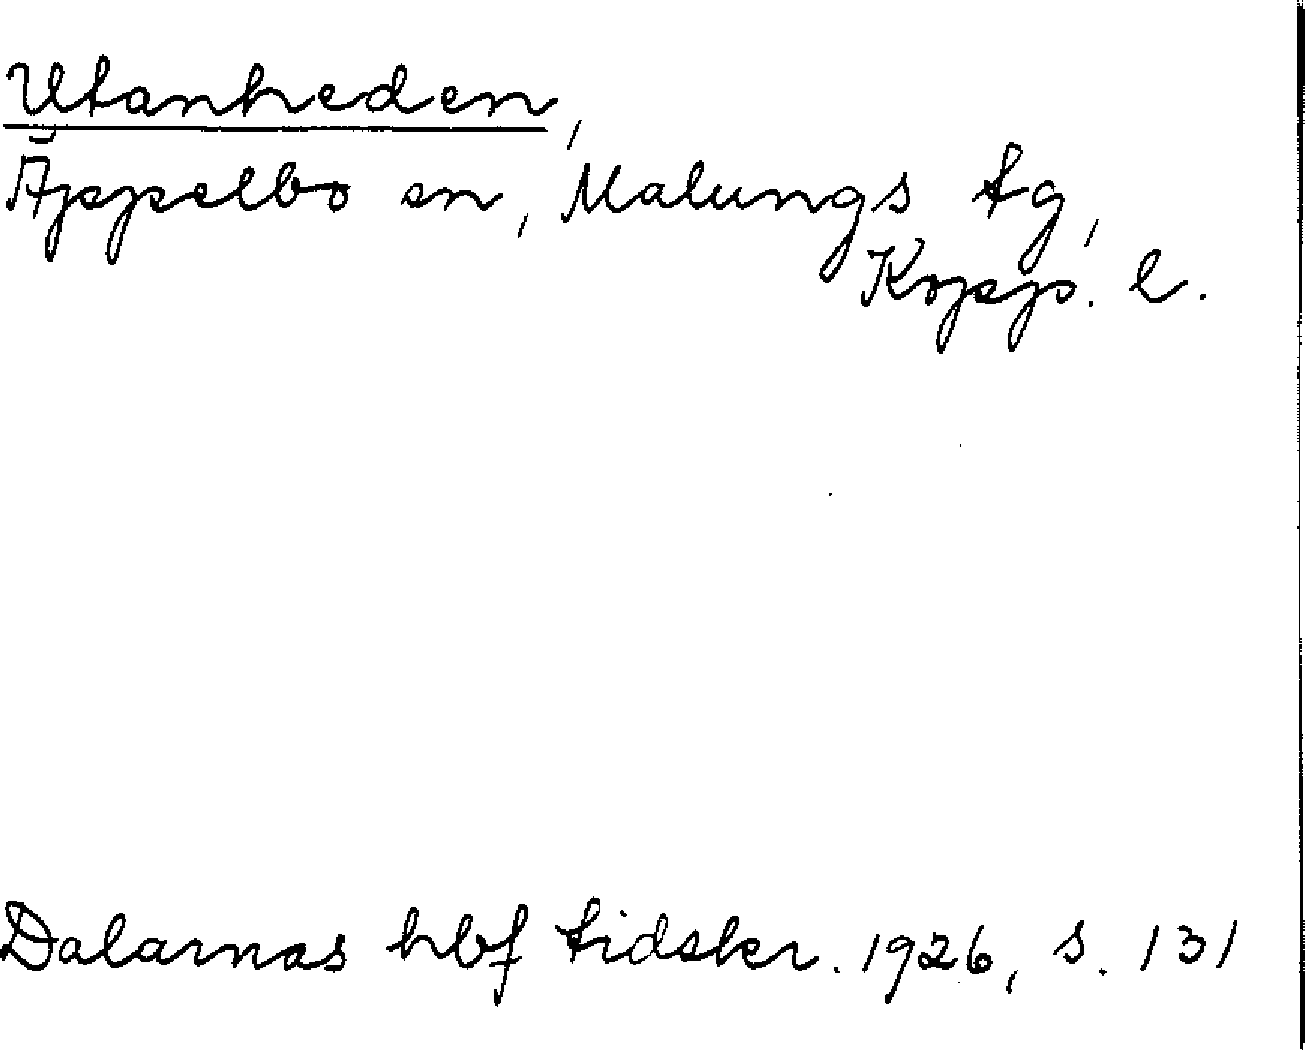 Utanheden,
Äppelbo sn, Malungs tg,
Kopp. l.
Dalarnas hbf tidskr. 1926, s. 131